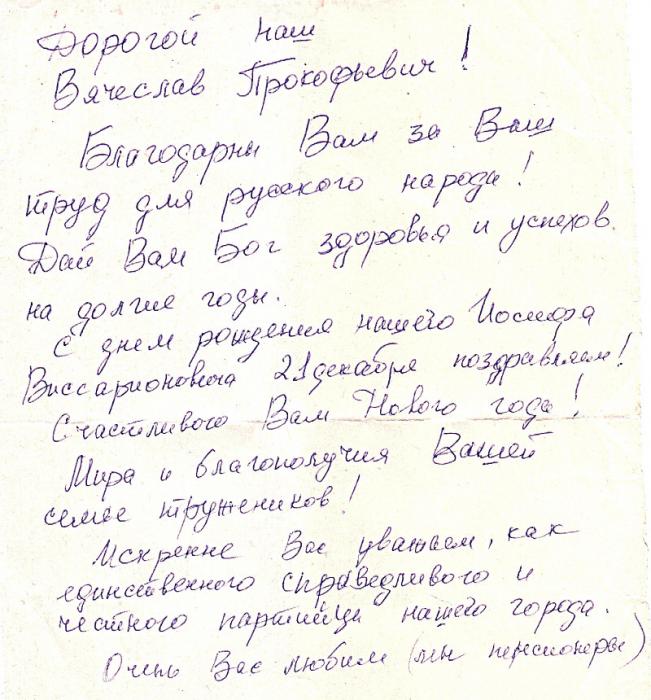 Дорогой наш
Вячеслав Прокофьевич!
Благодарны Вам за Ваш
труд для русского народа!
Дай Вам Бог здоровья и успехов
на долгие годы.
С днем рождения нашего Иосифа
Виссарионовича 21 декабря поздравляем!
Счастливого Вам Нового года!
Мира и благополучия Вашей
семье тружеников!
Искренне Вас уважаем, как
единственного справедливого и
честного партийца нашего города.
Очень Вас любим (мы пенсионеры)